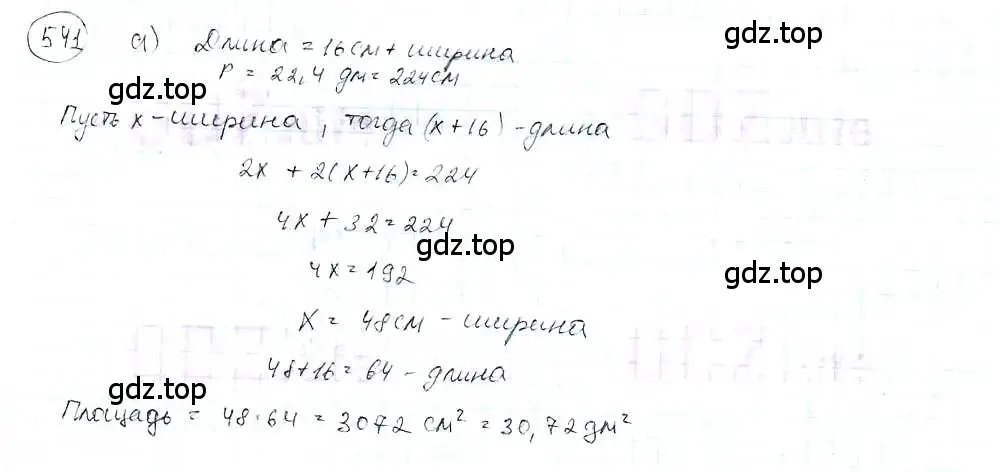 541 а) Длина = 16см + ширина
P = 22,4 дм = 224см
gdz.top
gdz.top
Пусть x - ширина, тогда (x+16) - длина
2x + 2(x+16) = 224
4x + 32 = 224
gdz.top
gdz.top
4x = 192
x = 48см - ширина
48+16 = 64 - длина
gdz.top
gdz.top
Площадь = 48·64 = 3072 см² = 30,72 дм²